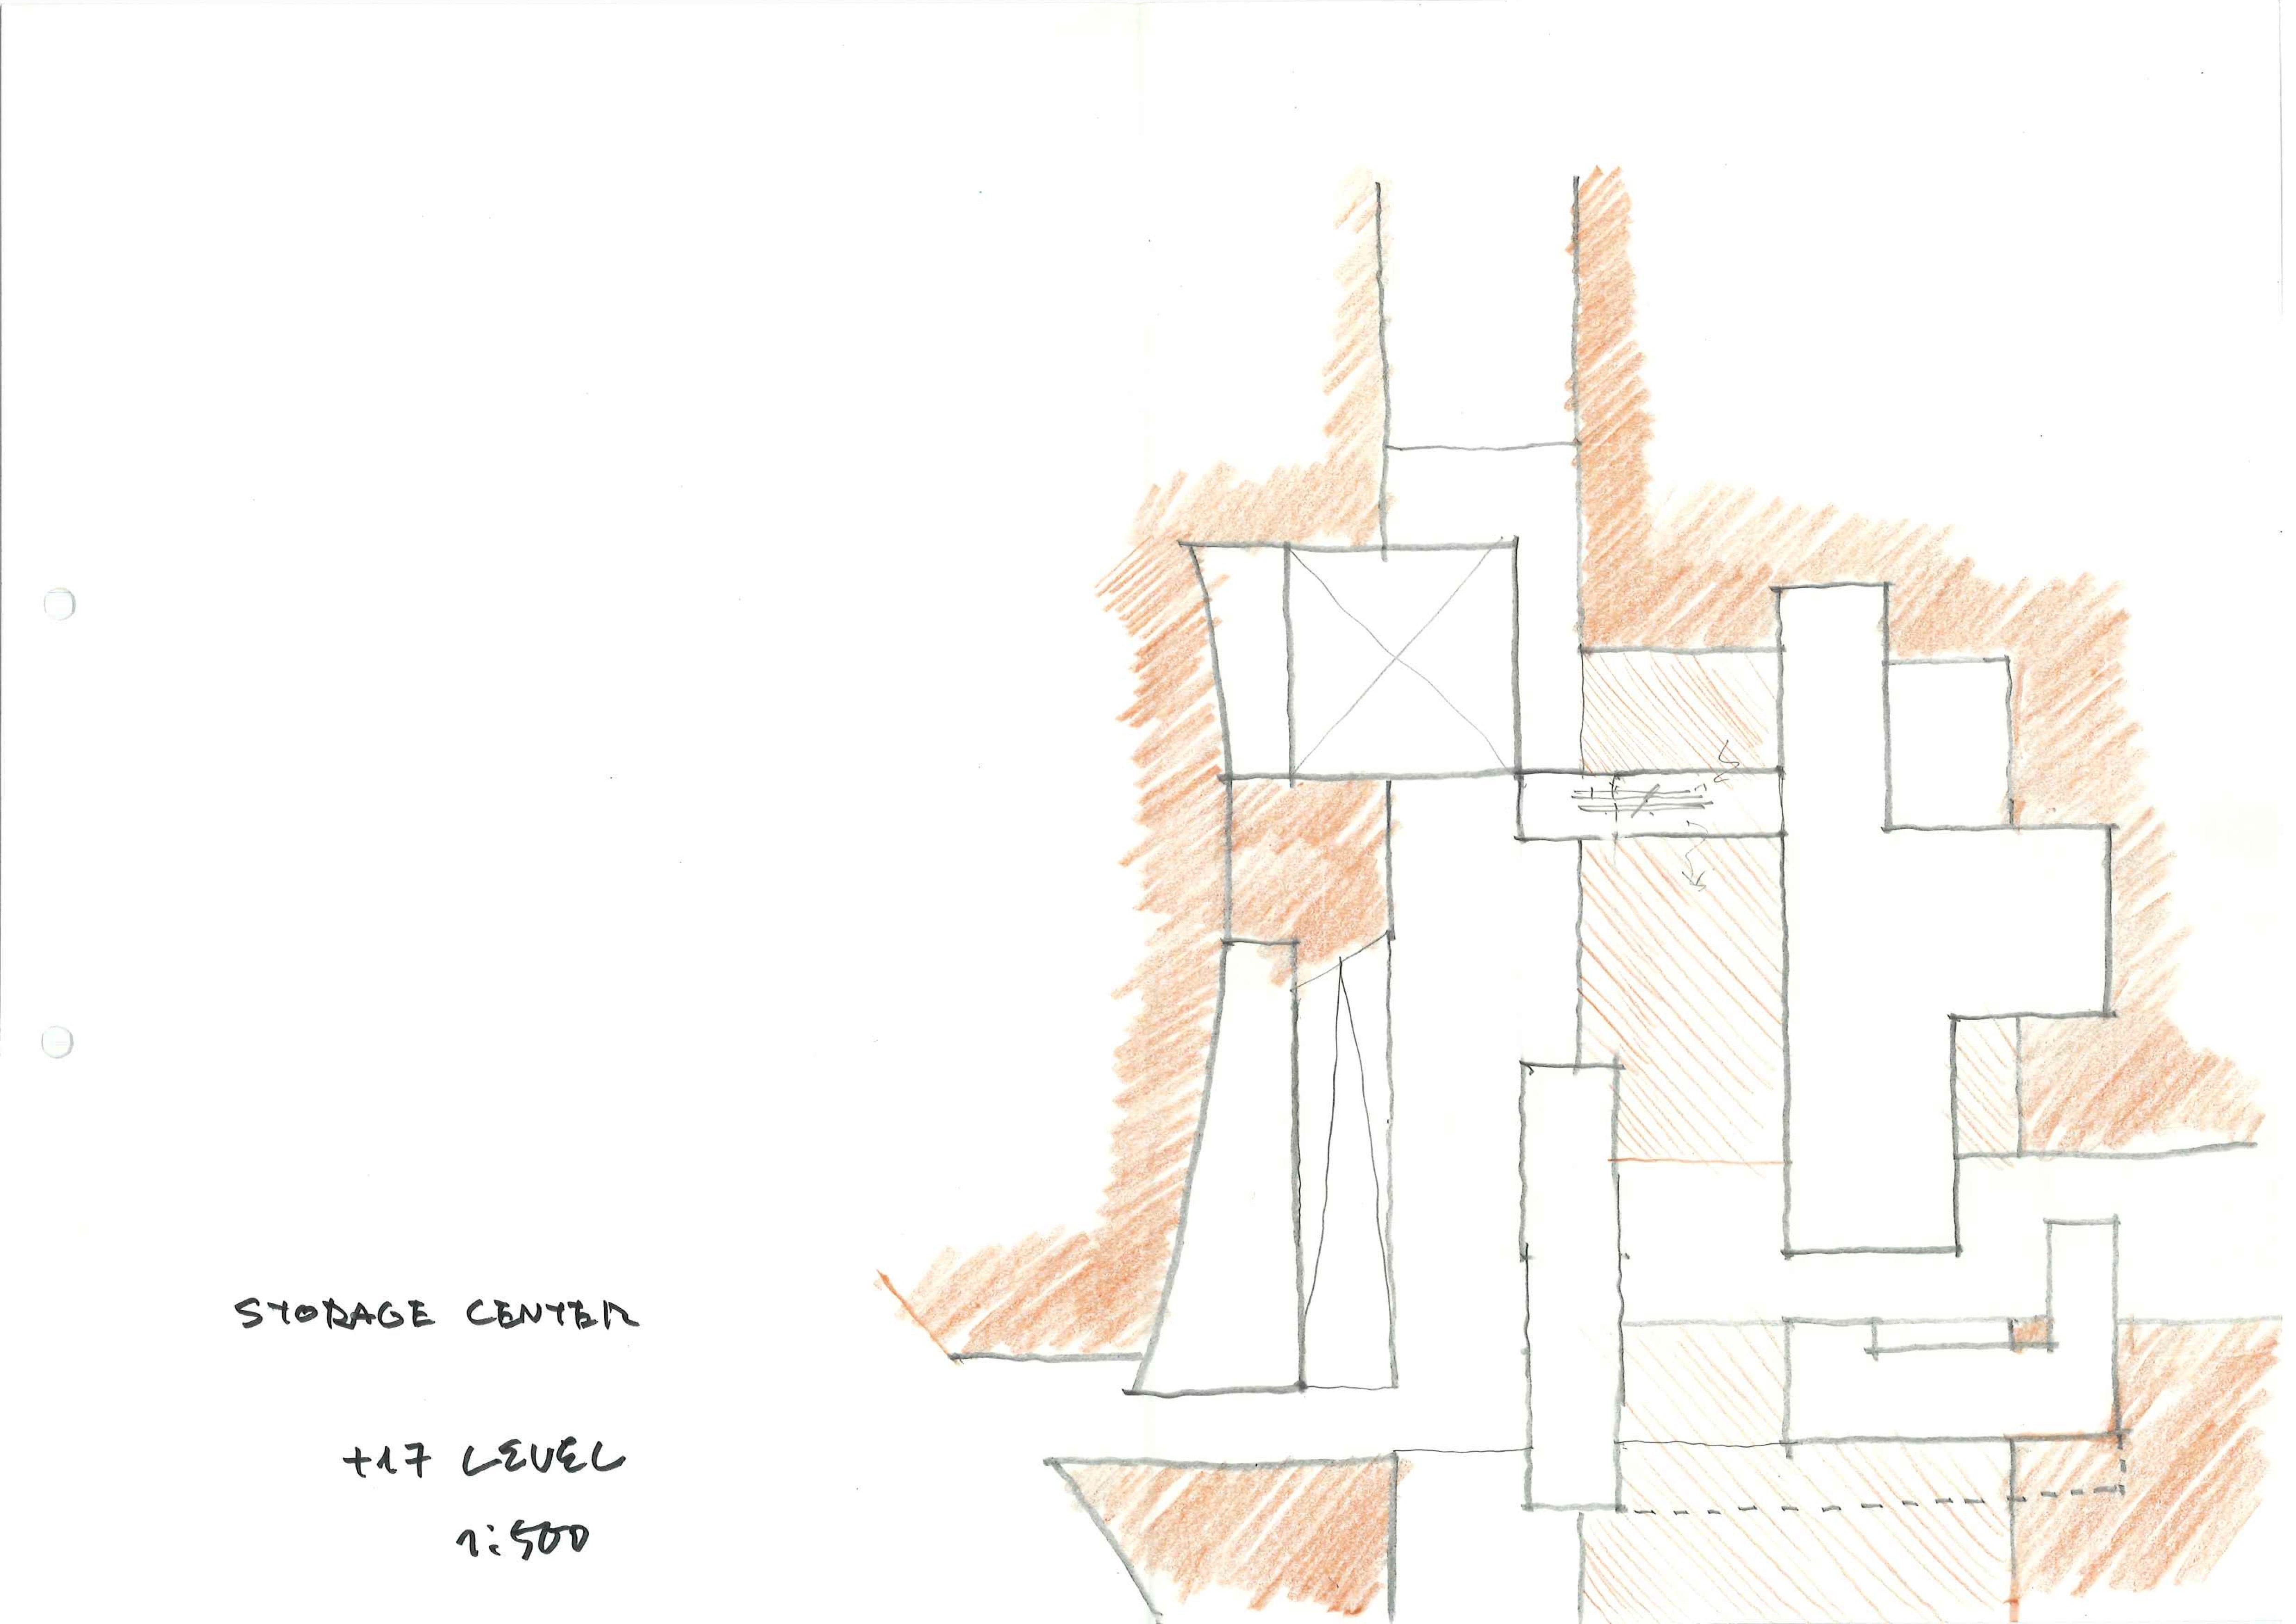 STORAGE CENTER
+17 LEVEL
1:500